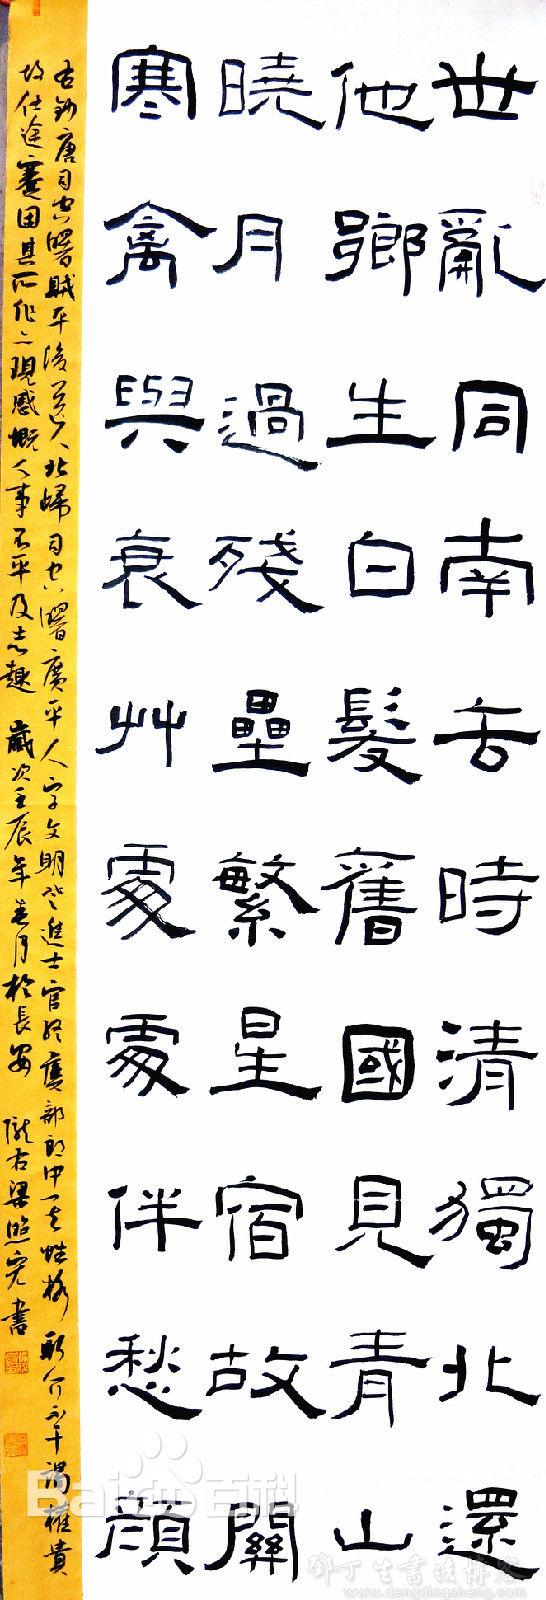 世亂同南去時清獨北還
他鄉生白髮舊國見青山
曉月過殘壘繁星宿故關
寒禽與衰艸處處伴愁顏
右鈔唐司空曙賊平後送人北歸司空曙廣平人字文明登進士官終虞部郎中性格耿介不干謁權貴
故仕途蹇困其所作現感慨人事不平及志趣 歲次壬辰年春月於長安 隴右梁照書
Baidu百科
鄧丁生書法博客
www.dengdingsheng.com